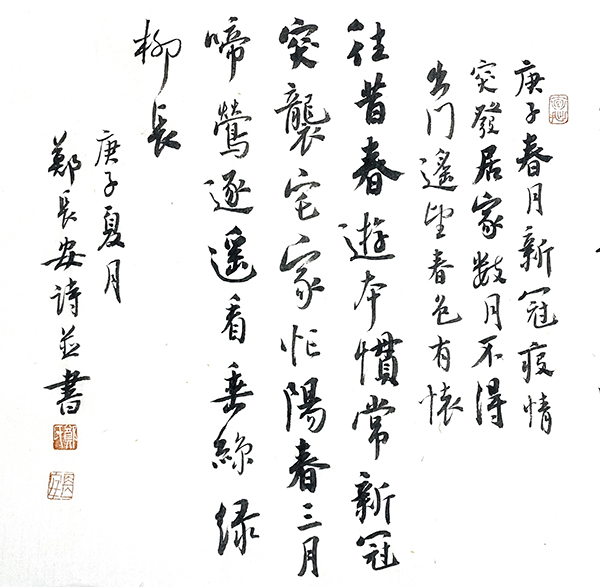 庚子春月新冠疫情
突發居家數月不得
出門遙望春色有懷
往昔春遊本慣常新冠
突襲宅家忙陽春三月
啼鶯逐遥看垂絲緑
柳長
庚子夏月
鄭長安詩並書